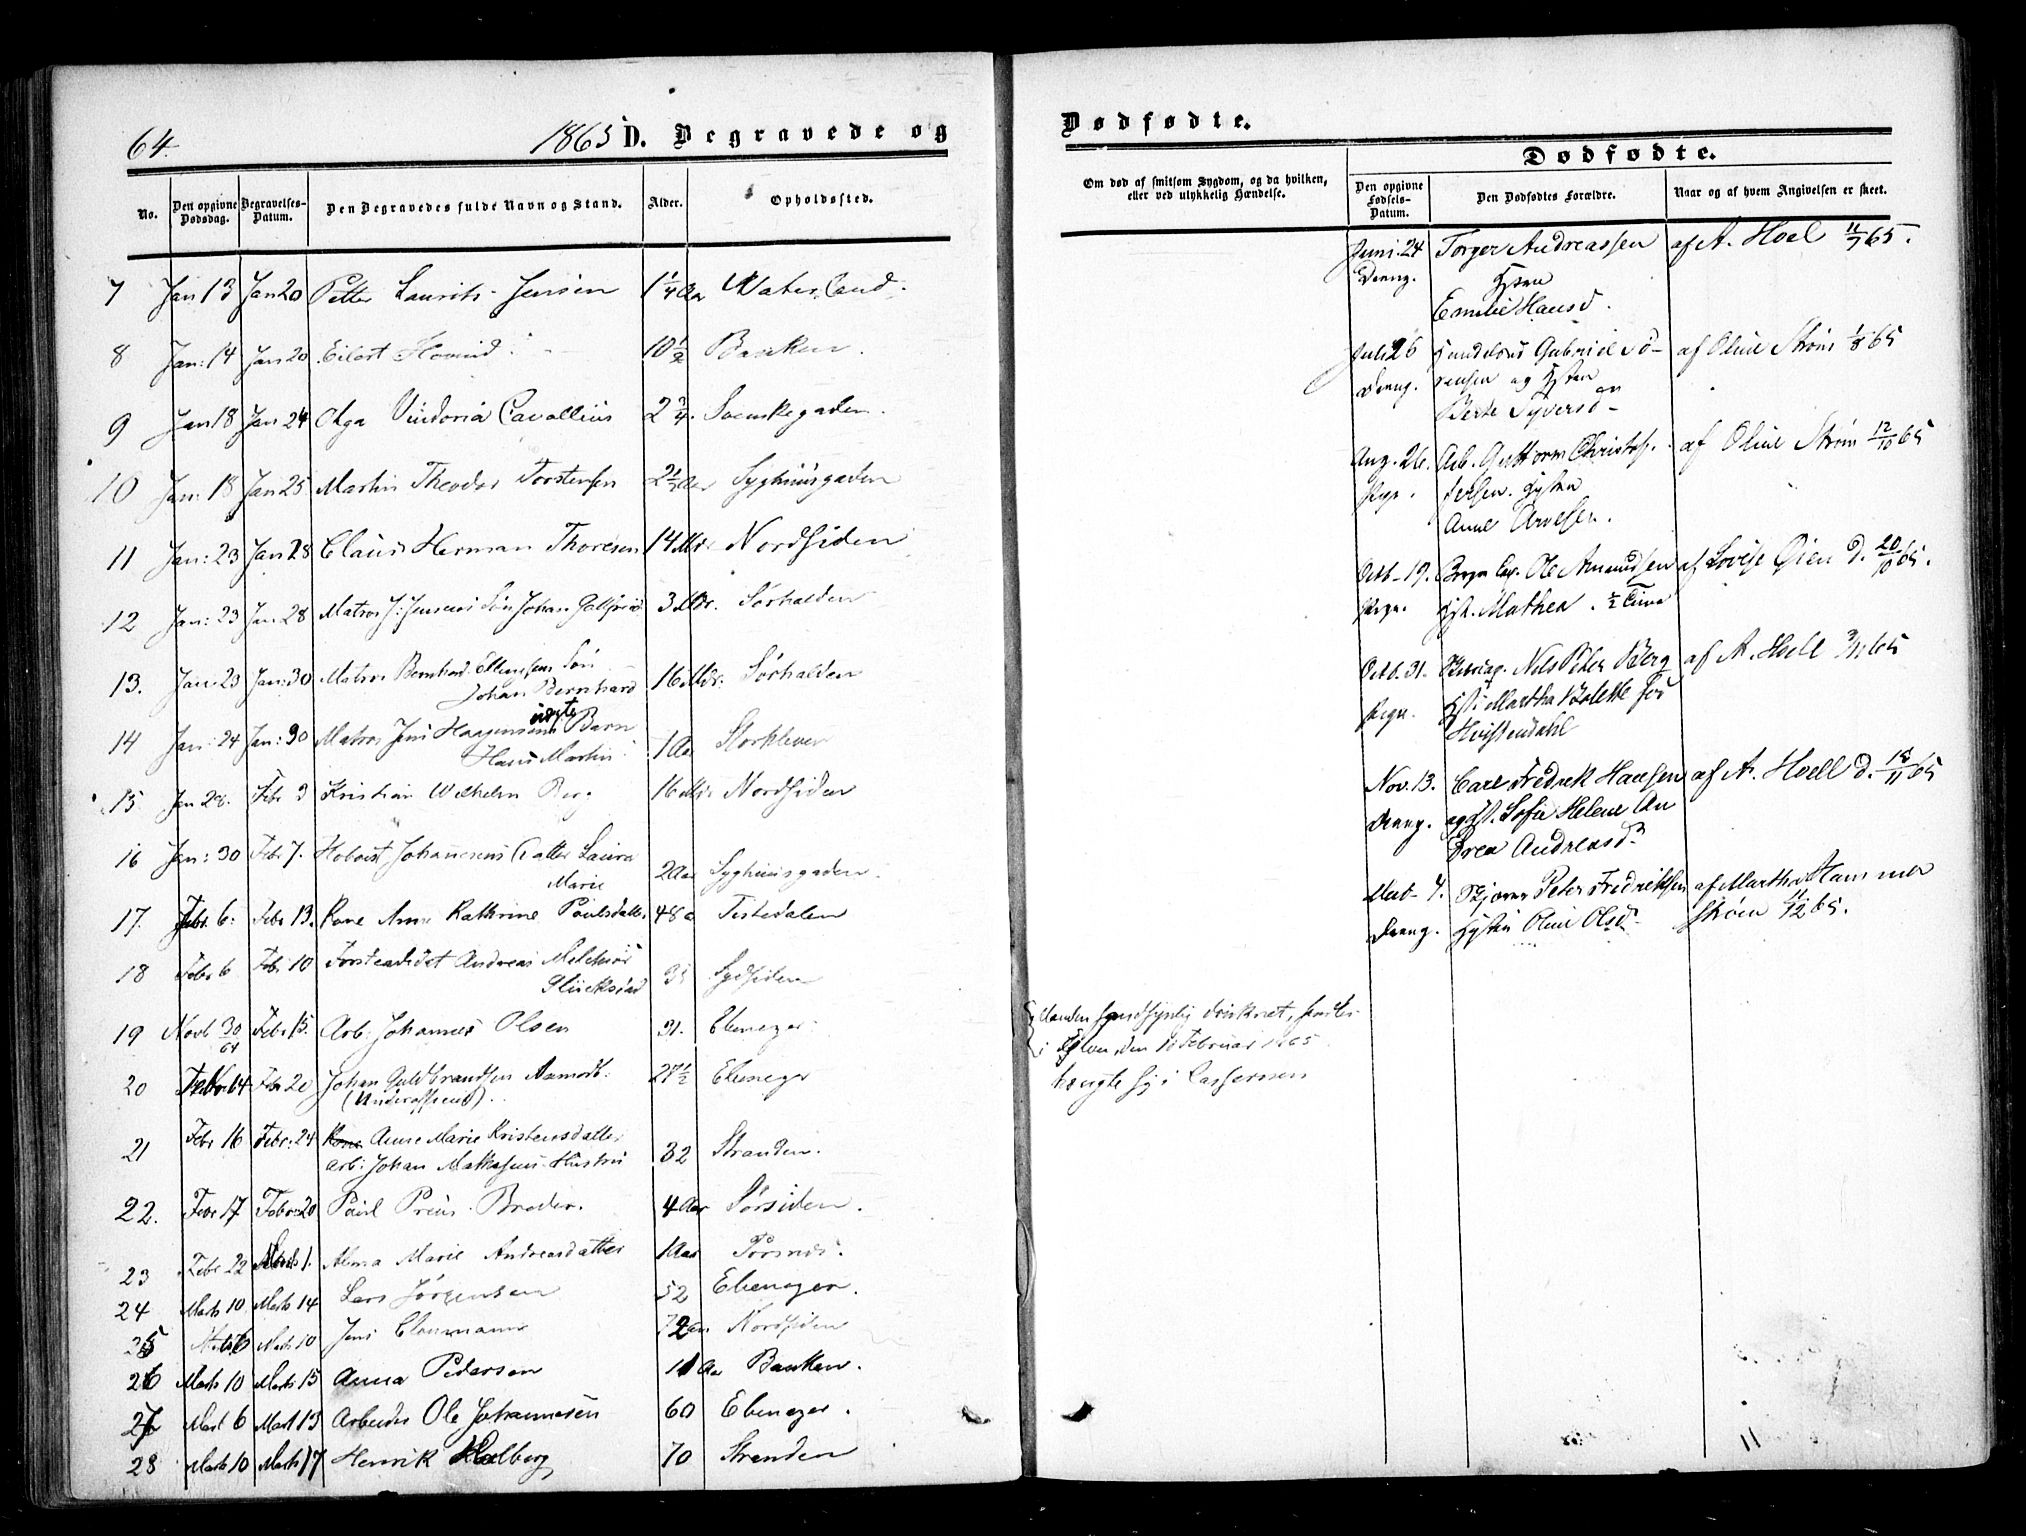 64.
1865 D. Begravede og
No.
Den opgivne Dødsdag.
Begravelses-Datum.
Den Begravedes fulde Navn og Stand.
Alder.
Opholdssted.
7 Jan 13 Jan 20 Petter Laurits Jensen 1 1/4 Aar Waterland.
8 Jan: 14 Jan 20 Eilert 10 1/2 Banken.
9 Jan 18 Jan 24 Olga Cavallius 2 3/4. Svenskegaden.
10 Jan: 18 Jan 25 Martin Theodor Torstensen 2 1/2 Aar Syghuusgaden
11 Jan: 23 Jan 28 Claus Herman Thoresen 14 Mdr. Nordsiden
12 Jan: 23 Jan 28 Matros J: Jensens Søn Johan 3 Mdr. Sørhalden
13. Jan: 23 Jan: 30 Matros Bernhard Ellingsens Søn
Johan Bernhard 16 Mdr. Sørhalden
14 Jan: 24 Jan: 30 Matros Jens Haagensens uægte Barn
Hans Martin 1 Aar Storkleven
15 Jan 28. Febr 3 Kristian Wilhelm Berg 16 Mdr Nordsiden
16 Jan: 30 Febr 7. Johannesens Datter Laura
Marie 2 Aar Syghuusgaden.
17. Febr 6: Febr 13. Kone Anne Kathrine Poulsdatter 48 a Tistedalen
18 Febr 6 Febr 10 Andreas Melchior
Glückstad 31 Sydsiden
19 Novb 30/64 Febr 15. Arb: Johannes Olsen 31. Ebenezer.
20 Febr 14 Febr 20 Johan Guldbrandsen Aamodt.
(Underofficeer). 27 1/2 Ebenezer
21 Febr 16 Febr: 24 Kone Anne Marie Kristensdatter
arb: Johan Mathisens Hustru 32 Stranden.
22. Febr 17 Febr: 20 Paul Preus Broder. 4 Aar Sørsiden.
23 Febr 22 Marts 1. Alma Marie Andreasdatter 1 Aar Torsnes.
24 Marts 10 Marts 14 Lars Jørgensen 52 Ebenezer.
25 Marts 6 Marts 10 Jens 72 Aar Nordsiden
26 Marts 10 Marts 15 Anna Pedersen 11 Aar Banken.
27 Marts 6 Marts 13 Arbeider Ole Johannesen 60 Ebenezer.
28 Marts 10 Marts 17 Henrik Holberg 70 Stranden
Dødfødte.
Om død af smitsom Sygdom, og da hvilken,
eller ved ulykkelig Hændelse.
Dødfødte.
Den opgivne Fødsels-Datum.
Den Dødfødtes Forældre.
Naar og af hvem Angivelsen er skeet.
Juni. 24 Torger Andreassen af A. Hoel 11/7 65.
Dreng. Hustru
Emilie Hansd.
Juli 26 Gabriel Sö- af Oline Strøm 1/8 65
Dreng. rensen og Hustru
Berte Syversd-
Aug. 26. Arb. Guttorm Christof- af Oline Strøm 12/10 65
Pige. fersen. Hustru
Anne Arvesen.
Octb- 19. Ole Amundsen af Lovise Øien d. 20/10 65.
Pige. Hust. Mathea. 1/2 Time
Octb. 31. Nils Peter Berg af A. Hoell 3/11 65
Pige. Hust. Martha Bolette før
Hvistendahl
Nov. 13. Carl Fredrik Hansen af A. Hoell d. 18/11 65
Dreng. og Hust. Sofie Helene An
drea Andreasd.
4. Peter Fredriksen af Martha Hammer
Dreng. Hustru Oline Olsd. Strøm 11/12 65.
fandtes
i Elven, den 10 Februar 1865
hængte sig i Casernen